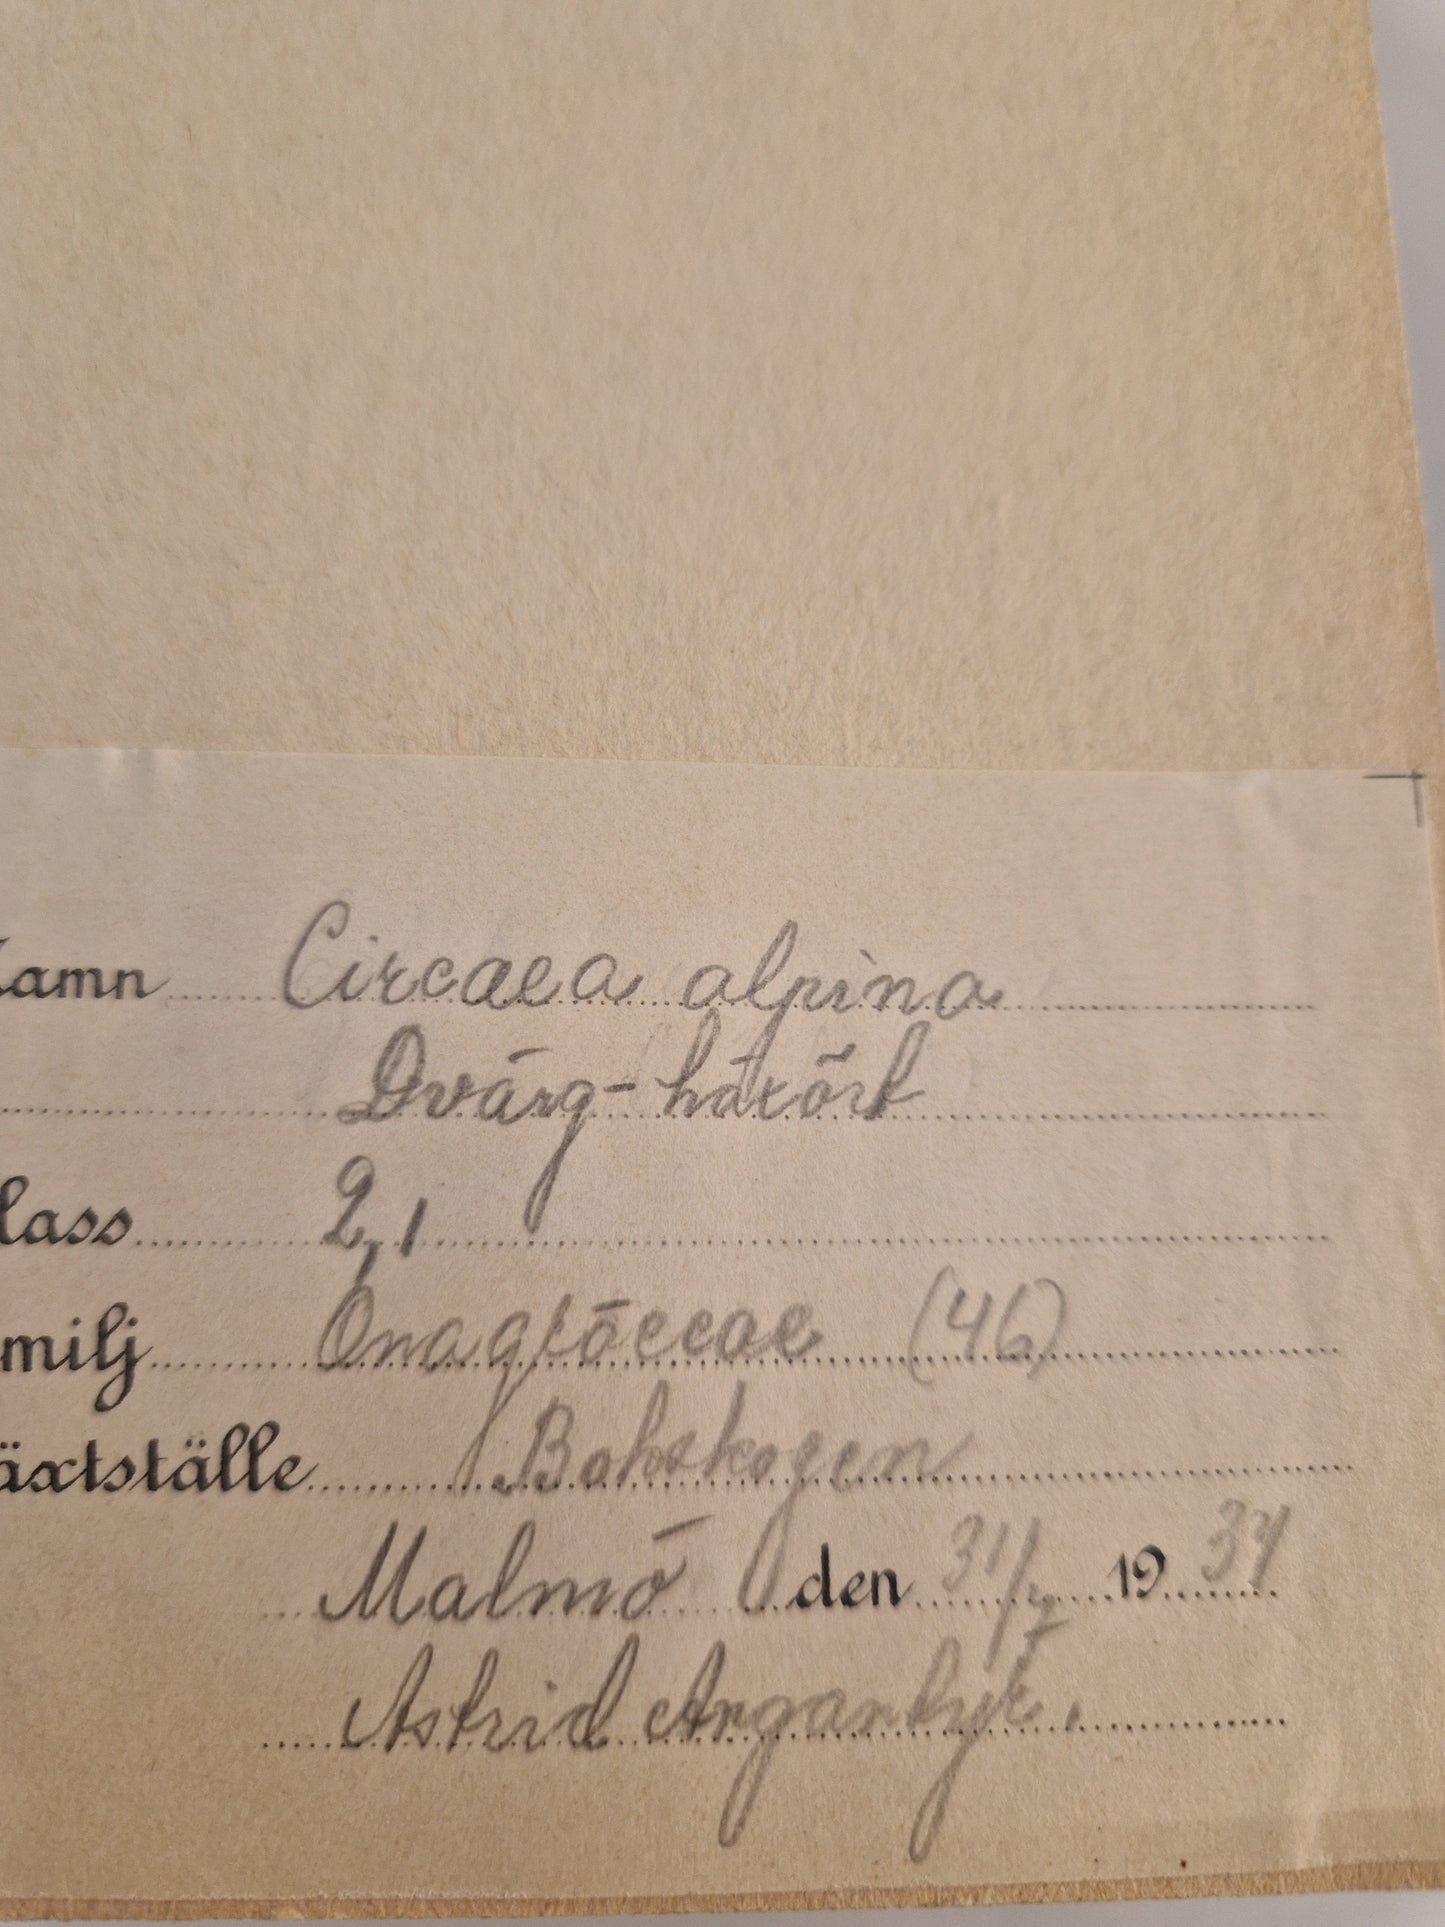 Namn Circaea alpina
Dvärg-häxört
lass 2,1
milj Onagráceae (46)
äxtställe Bokskogen
Malmö den 31/7 1937
Astrid